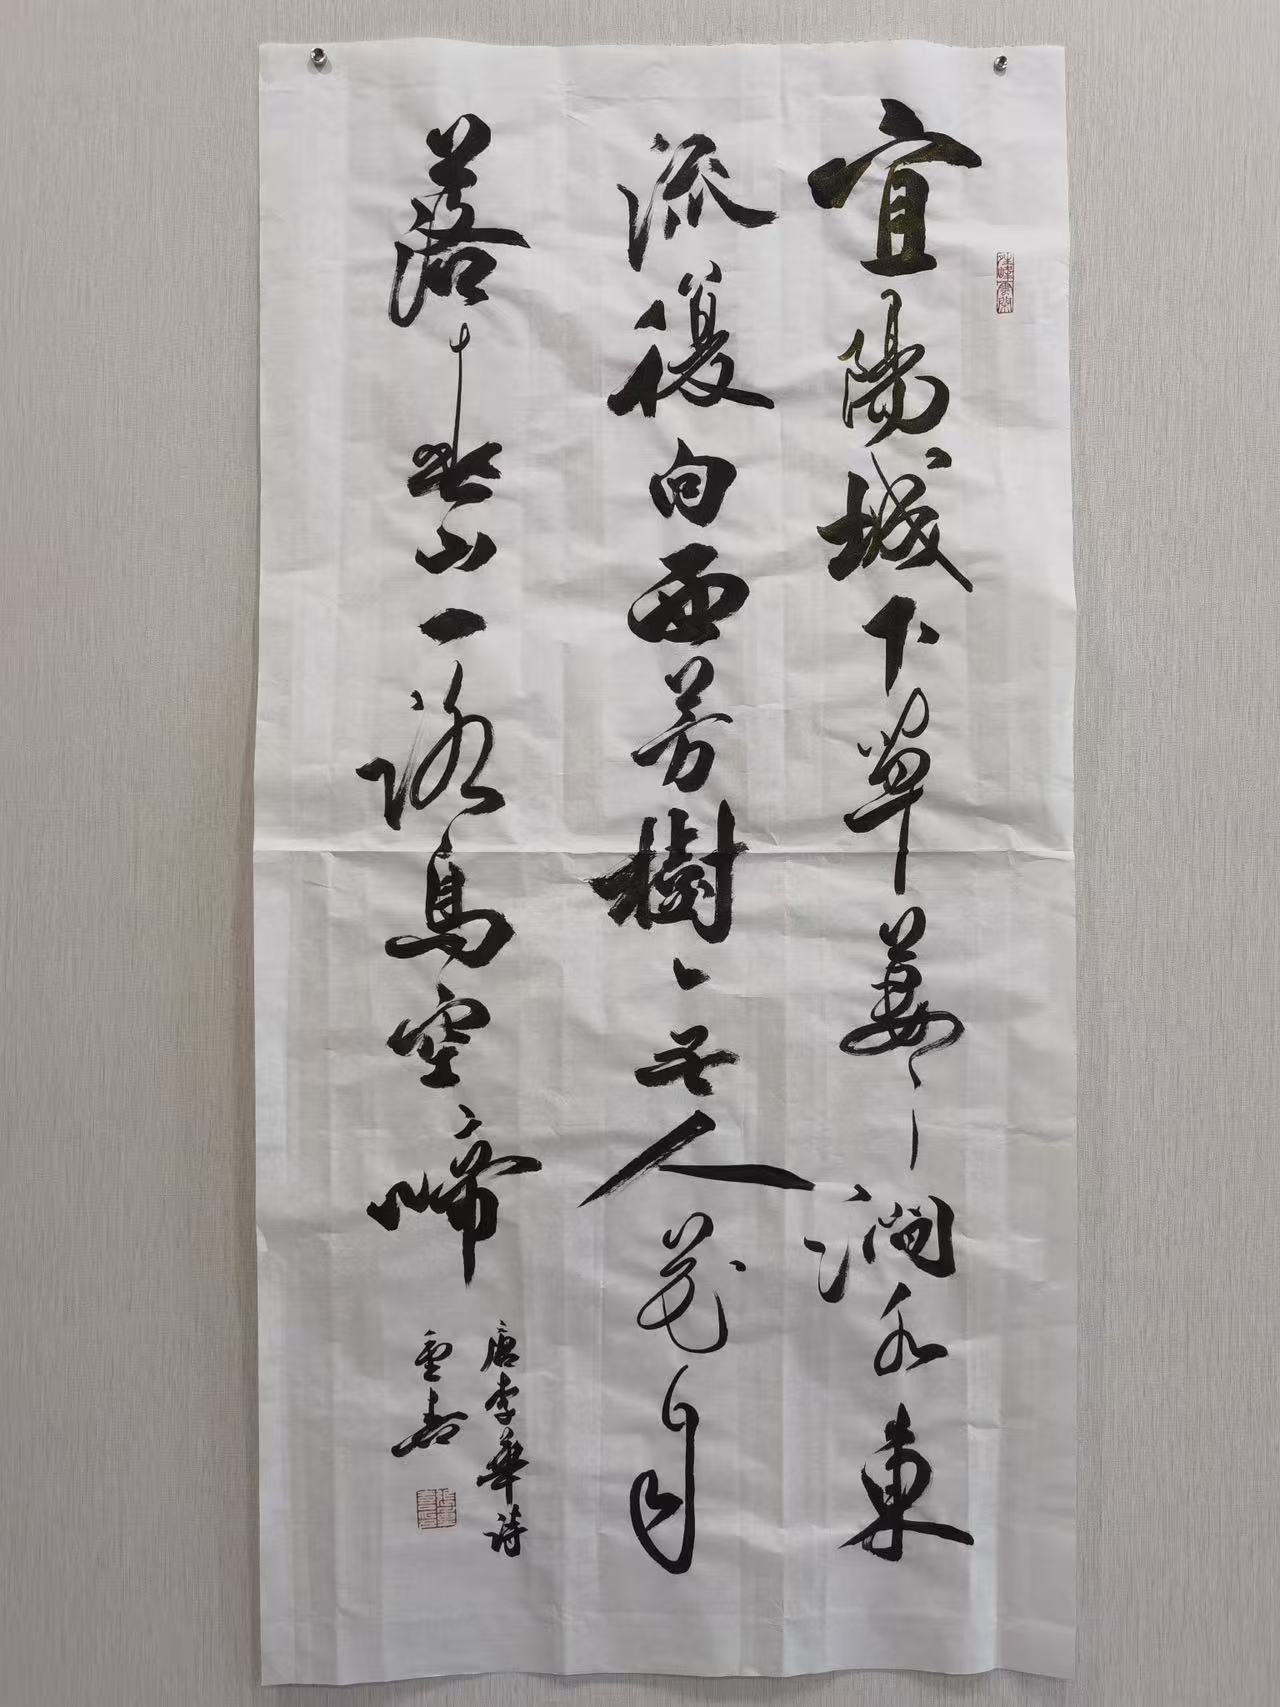 宜陽城下草萋〻澗水東
流復向西芳樹無人花自
落春山一路鳥空啼
唐李華詩
雲